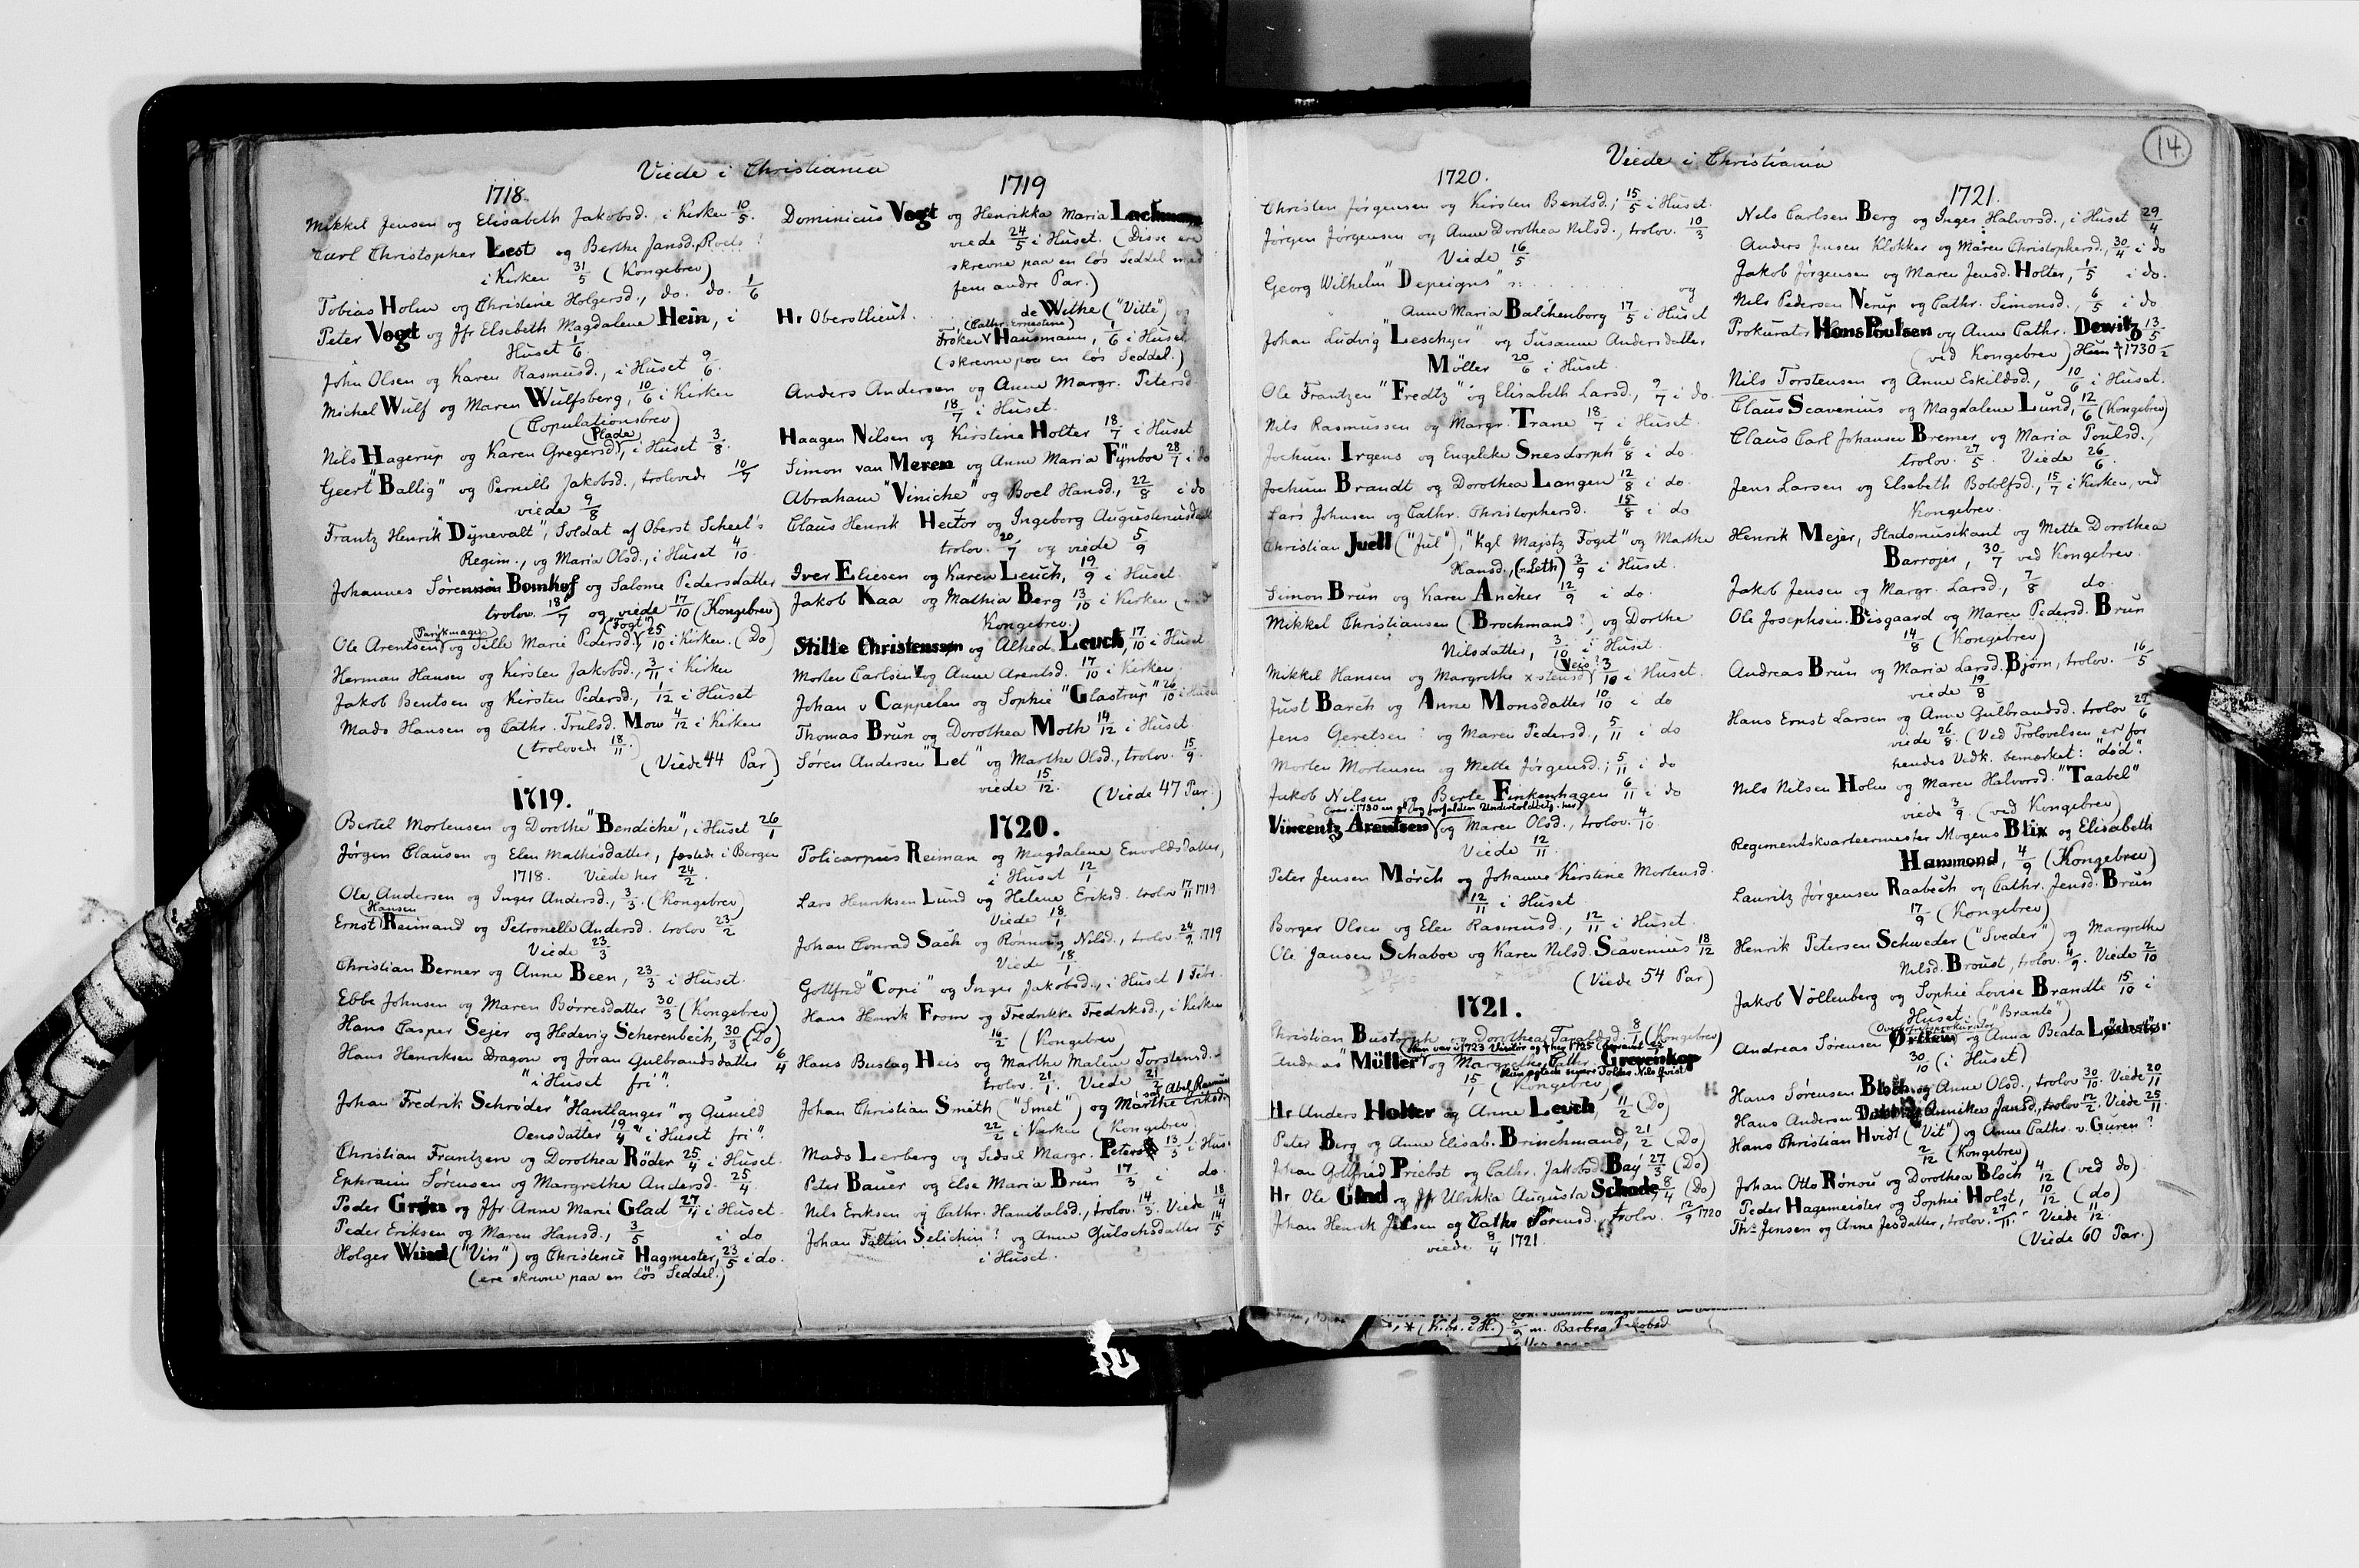 Viede i Christiania
1718.
Mikkel Jensen og Elisabeth Jakobsd. i Kirken 10/5.
Carl Christopher Lest og Berthe Jansd. Roels ?
i Kirken 31/5 (Kongebrev)
Tobias Holm og Christine Holgersd., do. do. 1/6
Peter Vogt og Jfr Elsebeth Magdalene Hein, i
Huset 1/6.
John Olsen og Karen Rasmusd., i Huset 9/6.
Michel Wulf og Maren Wulfsberg, 10/6 i Kirken
(Copulationsbrev)
(Plade)
Nils Hagerup og Karen Gregersd., i Huset 3/8.
Geert "Ballig" og Pernille Jakobsd., trolovede 10/7
viede 9/8
Frantz Henrik "Dynevalt", Soldat af Oberst Scheel's
Regim., og Maria Olsd., i Huset 4/10.
Johannes Sørensen Bomhof og Salome Pedersdatter
trolov. 18/7 og viede 17/10 (Kongebrev)
Parykmager "Fogt")
Ole Arentsen og Sille Marie Pedersd. 25/10 i Kirken. (Do)
Herman Hansen og Kirsten Jakobsd., 3/11 i Kirken
Jakob Bentsen og Kirsten Pedersd., 1/12 i Huset
Mads Hansen og Cathr. Trulsd. Mow 4/12 i Kirken
(trolovede 18/11.)
(Viede 44 Par)
1719.
Bertel Mortensen og Dorothe "Bendiche", i Huset 26/1
Jørgen Clausen og Elen Mathisdatter, fæstede i Bergen
1718. Viede her 24/2.
Ole Andersen og Inger Andersd., 3/3. (Kongebrev)
Hansen
Ernst Reimand og Petronelle Andersd. trolov 23/2
Viede 23/3
Christian Berner og Anne Been, 23/3 i Huset.
Ebbe Johnsen og Maren Børresdatter 30/3 (Kongebrev)
Hans Casper Sejer og Hedevig Scherenbech, 30/3 (Do)
Hans Henriksen Dragon og Jøran Gulbrandsdatter 6/4
"i Huset fri".
Johan Fredrik Schrøder "Hantlanger" og Gunild
Oensdatter 19/4 "i Huset fri".
Christian Frantzen og Dorothea Röder 25/4 i Huset.
Ephraim Sørensen og Margrethe Andersd. 25/4.
Peder Grøn og Jfr. Anne Marie Glad 27/4 i Huset.
Peder Eriksen og Maren Hansd., 3/5 i do
Holger Wiind ("Vin") og Christence Hagmester, 23/5 i do.
(ere skrevne paa en løs Seddel.)
1719
Dominicus Vogt og Henrikka Maria Lachmann
viede 24/5 i Huset. (Disse ere
skrevne paa en løs Seddel med
fem andre Par.)
Hr Oberstlieut. de Withe ("Vitte") og
(Cathr. Ernestine)
Frøken Hausmann, 1/6 i Huset
(skrevne paa en løs Seddel.)
Anders Andersen og Anne Margr. Petersd.
18/7 i Huset.
Haagen Nilsen og Kirstine Holter 18/7 i Huset
Simon van Meren og Anne Maria Fynboe 28/7 i do
Abraham "Viniche" og Boel Hansd., 22/8 i do
Claus Henrik Hector og Ingeborg Augustinusdatt
trolov. 20/7 og viede 5/9
Iver Eliesen og Karen Leuch, 19/9 i Huset
Jakob Kaa og Mathia Berg 13/10 i Kirken (ved
Kongebrev.)
Stille Christenssøn og Alhed Leuch, 17/10 i Huset.
Morten Carlsen og Anne Arentsd. 17/10 i Kirken.
Johan v Cappelen og Sophie "Glastrup" 26/10 i Huset
Thomas Brun og Dorothea Moth 14/12 i Huset
Søren Andersen "Let" og Marthe Olsd., trolov. 15/9.
viede 15/12.
(Viede 47 Par.)
1720.
Policarpus Reiman og Magdalene Envoldsdatter,
i Huset 12/1
Lars Henriksen Lund og Helene Eriksd. trolov 17/11 1719.
Viede 18/1
Johan Conrad Sach og Rønnoug Nilsd., trolov. 24/9 1719
Viede 18/1.
Gottfred "Copi" og Inger Jakobsd., i Huset 1 Febr.
Hans Henrik From og Fredrikke Fredriksd., i Kirken
16/2 (Kongebrev)
Hans Bustag Heis og Marthe Malene Torstensd.
trolov. 21/1. Viede 21/2
Abel Rasmusd
Johan Christian Smith ("Smet") og Marthe Eriksd.
22/2 i Kirken (Kongebrev)
Mads Lerberg og Sidsel Margr. Peters 13/3 i Hus
Peter Bauer og Else Maria Brun 17/3, i do.
Nils Eriksen og Cathr. Hanibalsd., trolov. 14/3. Viede 18/4
Johan Faltin Selichin? og Anne Gulichsdatter 14/5
i Huset.
Viede i Christiania
14.
1720.
Christen Jörgensen og Kirsten Bentsd., 15/5 i Huset.
Jörgen Jörgensen og Anne Dorothea Nilsd., trolov. 10/3
Viede 16/5
Georg Wilhelm "Depeigns" og
Anne Maria Balchenborg 17/5 i Huset
Johan Ludvig "Leschyer" og Susanne Andersdatter
Möller 20/6 i Huset.
Ole Frantzen "Fredtz" og Elisabeth Larsd., 9/7 i do.
Nils Rasmussen og Margr. Trane 18/7 i Huset.
Jochum Irgens og Engelcke Snesdorph 6/8 i do.
Jochum Brandt og Dorothea Langen 12/8 i do.
Lars Johnsen og Cathr. Christophersd. 15/8 i do
Christian Juell ("Jul"), "Kgl Majstz Foget" og Marthe
Hansd., (Leth) 3/9 i Huset.
Simon Brun og Karen Ancher 12/9 i do.
Mikkel Christiansen (Brochmand?), og Dorthe
Nilsdatter, 3/10 i Huset.
Mikkel Hansen og Margrethe x stensd 3/10 i Huset.
Just Barch og Anne Monsdatter 10/10 i do
Jens Geretsen? og Maren Pedersd., 5/11 i do
Morten Mortensen og Mette Jørgensd.; 5/11 i do
Jakob Nilsen og Berte Finkenhagen 6/11 i do
Vincentz Arentsen og Maren Olsd., trolov. 4/10.
Viede 12/11.
Peter Jensen Mørch og Johanne Kirstine Mortensd.
12/11 i Huset.
Borger Olsen og Elen Rasmusd., 12/11 i Huset.
Ole Jansen Schaboe og Karen Nilsd. Scavenius 18/12
(Viede 54 Par)
1721.
Christian Bustorph og Dorothea Taraldsd. 8/1 (Kongebrev)
Andreas Müller og Margrethe Cathr. Grevenkop
15/1 (Kongebrev)
Hr Anders Holter og Anne Leuch, 11/2 (Do)
Peter Berg og Anne Elisab. Brinchmand, 21/2 (Do)
Johan Gottfried Priebst og Cathr. Jakobsd. Bay 27/3 (Do)
Hr Ole Glad og Jfr Ulrikka Augusta Schade 8/4 (Do)
Johan Henrik Jensen og Cathr Sørensd., trolov. 12/9 1720
viede 9/4 1721.
1721.
Nels Carlsen Berg og Inger Halvorsd., i Huset 29/4
Anders Jensen Klokker og Maren Christophersd., 30/4 i do
Jakob Jørgensen og Maren Jensd. Holter, 1/5 i do.
Nils Pedersen Nerup og Cathr. Simonsd., 6/5 i do
Prokurator Hans Poulsen og Anne Cathr. Dewitz 13/5
(ved Kongebrev) Hun † 1730
Nils Torstensen og Anne Eskildsd., 10/6 i Huset.
Claus Scavenius og Magdalene Lund, 12/6 (Kongebrev)
Claus Carl Johansen Bremer og Maria Poulsd.,
trolov. 27/5. Viede 26/6.
Jens Larsen og Elsebeth Bololfsd., 15/7 i Kirken, ved
Kongebrev.
Henrik Mejer, Stadsmusikant og Mette Dorothea
Barrojer, 30/7 ved Kongebrev.
Jakob Jensen og Margr. Larsd., 7/8 do.
Ole Josephsen Bisgaard og Maren Pedersd. Brun
14/8 (Kongebrev)
Andreas Brun og Maria Larsd. Bjørn, trolov. 16/5
viede 19/8
Hans Ernst Larsen og Anne Gulbrandsd. trolov 27/6
viede 26/8. (Ved Trolovelsen er for
hendes Vedk. bemærket: "död".
Nils Nilsen Holm og Maren Halvorsd. "Taabel"
viede 3/9 (ved Kongebrev)
Regimentskvarteermester Mogens Blix og Elisabeth
Hammond, 4/9 (Kongebrev)
Lauritz Jørgensen Raabech og Cathr. Jensd. Brun
17/9 (Kongebrev)
Henrik Petersen Schweder ("Sveder") og Margrethe
Nilsd. Broust, trolov. 4/9. Viede 2/10
Jakob Völlenberg og Sophie Lovise Brandte 15/10 i
Huset. ("Brante")
Andreas Sørensen og Anna Beata
30/10 (i Huset)
Hans Sørensen Bloch og Anne Olsd., trolov 30/10. Viede 20/11
Hans Andersen Anniken Jansd., trolov 12/2. Viede 25/11.
Hans Christian Hvidt ("Vit") og Anne Cathr. v. Güren?
2/12 (Kongebrev)
Johan Otto Rönou og Dorothea Bloch 4/12 (ved do)
Peder Hagemeister og Sophie Holst, 10/12 (do)
Ths Jensen og Anne Jesdatter, trolov. 27/11. Viede 11/12.
(Viede 60 Par.)